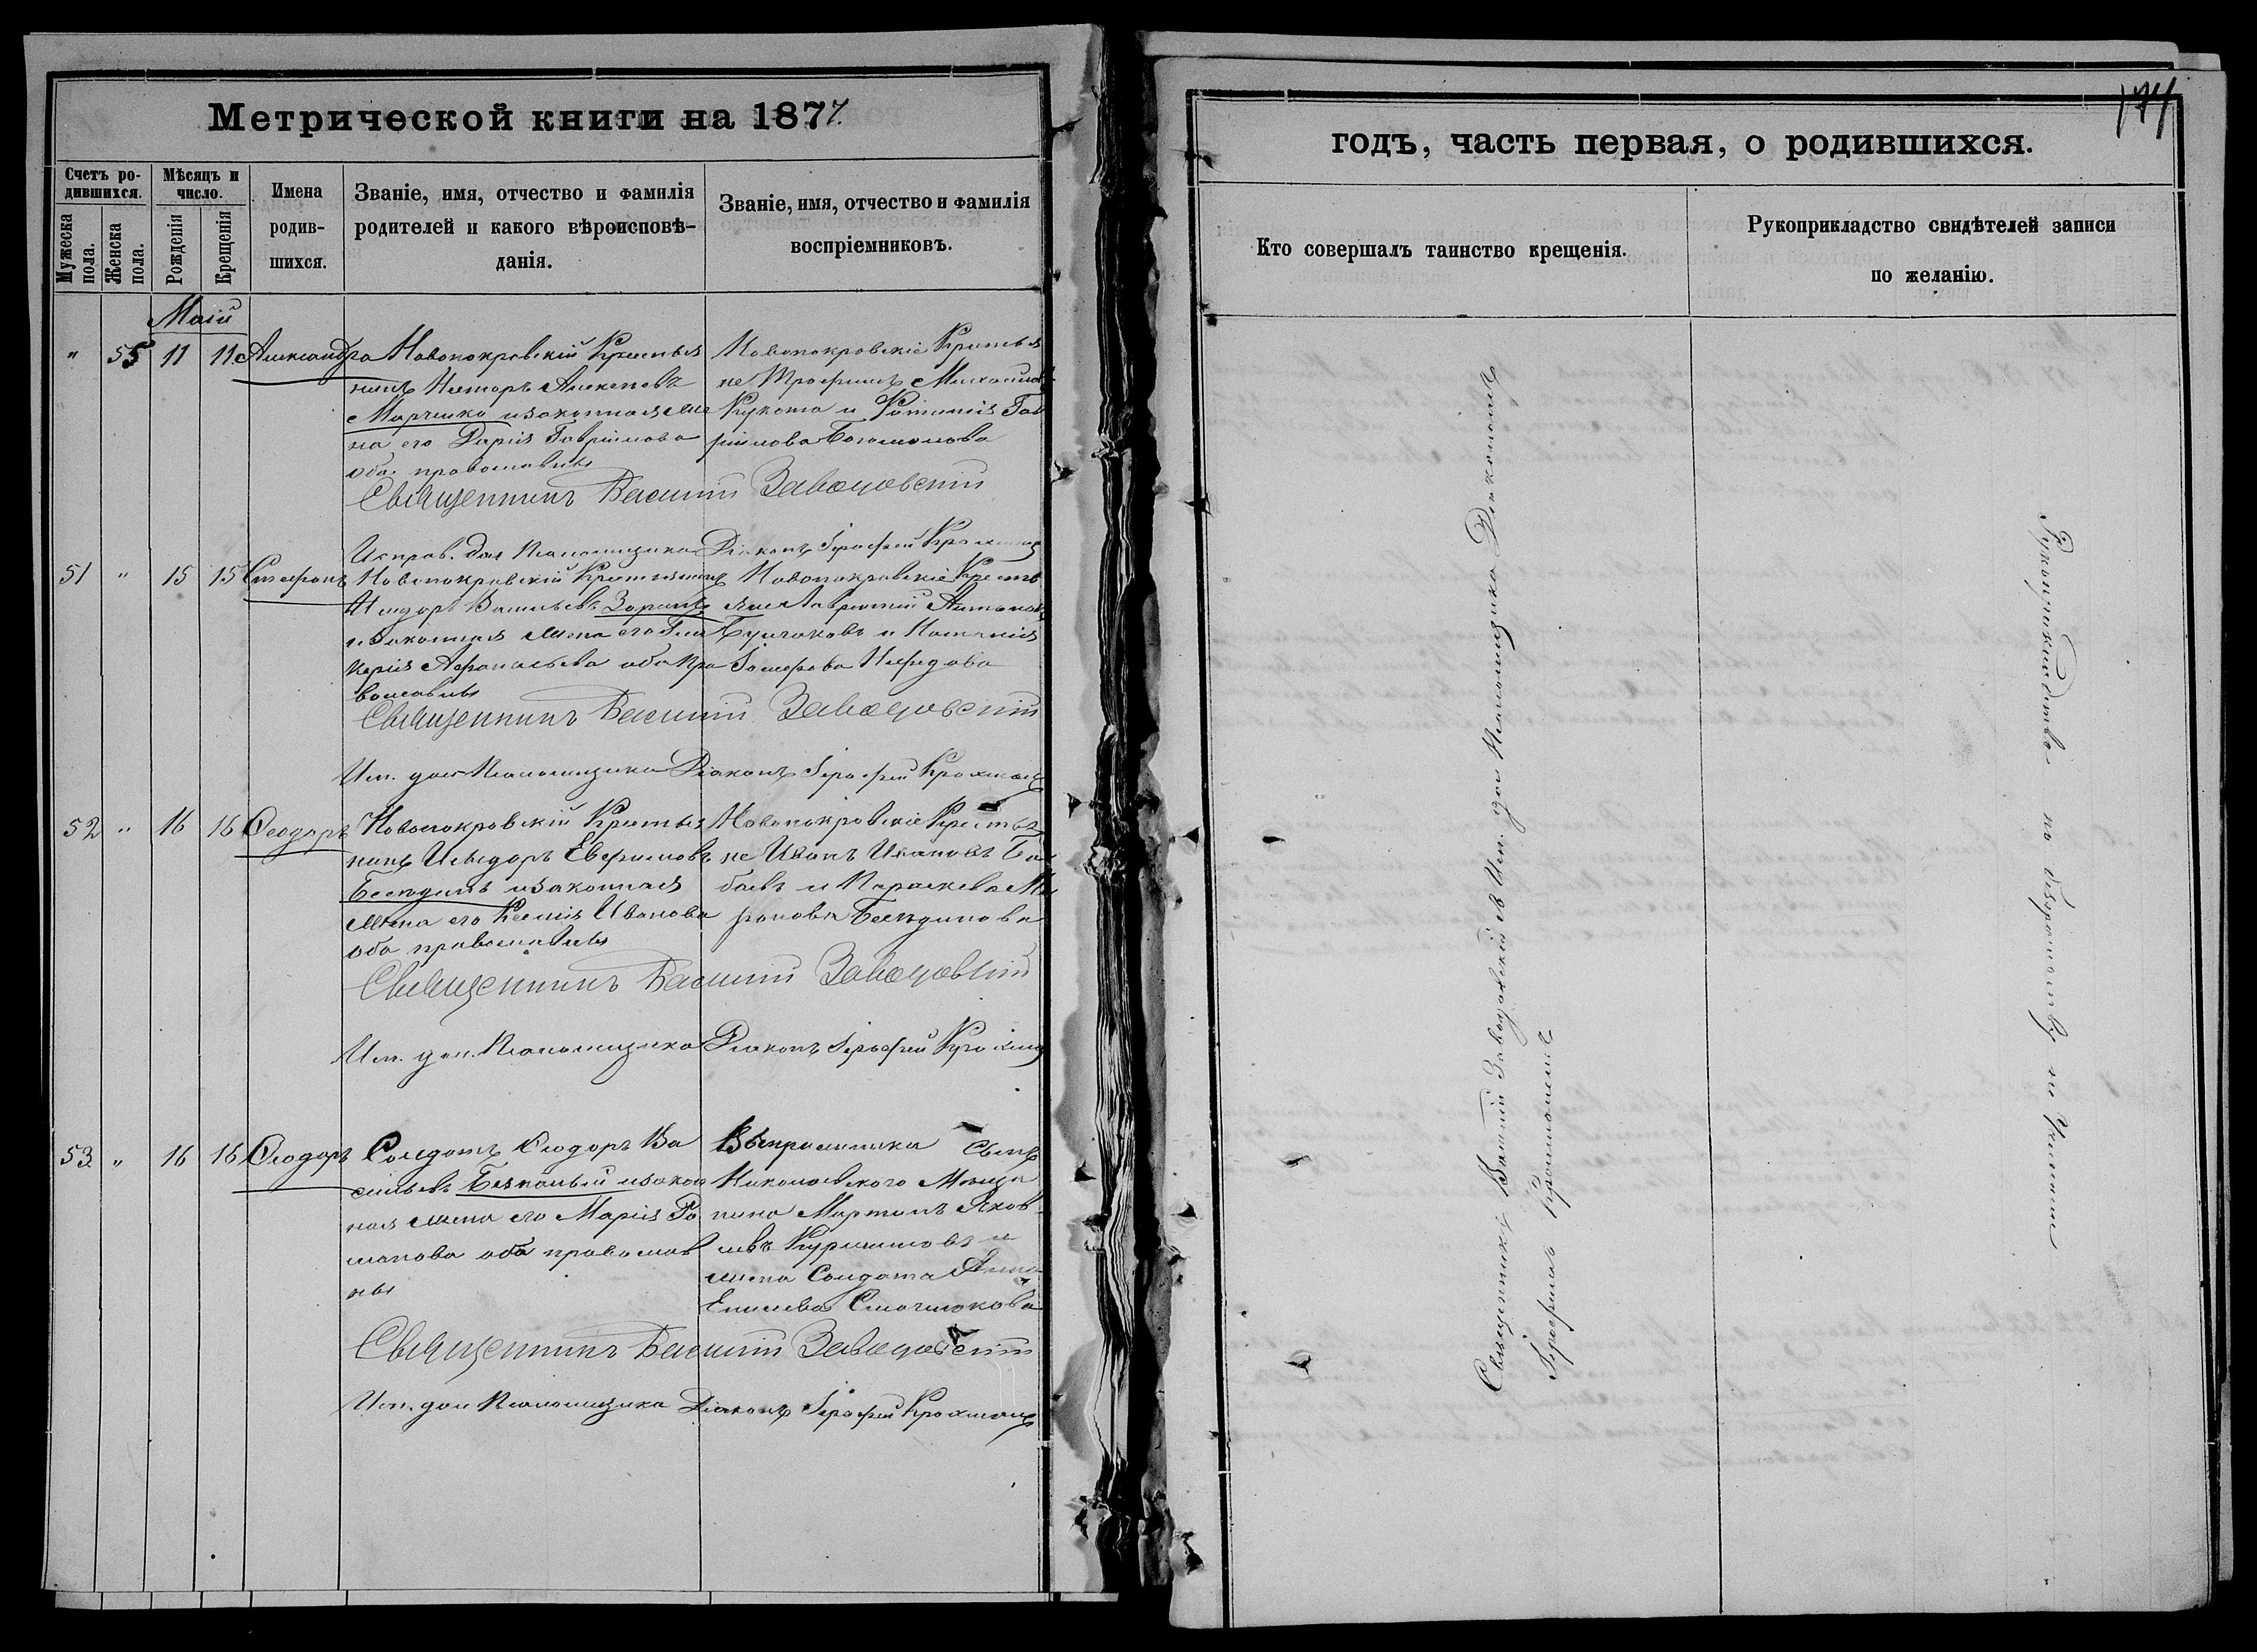 Метрической книги на 1877.
Счетъ ро-
дившихся.
Мужеска
пола.
Женска
пола.
Мѣсяцъ и
число.
Рожденія
Крещенія
Имена
родив-
шихся.
Званіе, имя, отчество и фамилія
родителей и какого вѣроисповѣ-
данія.
Званіе, имя, отчество и фамилія
воспріемниковъ.
Маій
" 55 11 11 Александра
Новопокровскій Крестья
нинъ Несторъ Алексеевъ
Марченко и законная же
на его Дарія Гавріилова
оба православны
Новопокровскіе Крестья
не Трофимъ Михаилов
Кукота и Фотинія Гав
ріилова Богомолова
Священникъ Василій Заводовскій
Исправ. дол Псаломщика Діаконъ Іерофей Крохмалъ
51 " 15 15 Стефанъ
Новопокровскій Крестьянинъ
Исидоръ Васильевъ Зоринъ
и законная жена его Гли
керія Афанасьева оба пра
вославны
Новопокровскіе Кресть
яне Лаврентій Антонов
Бунчаковъ и Наталія
Іосифова Нефедова
Священникъ Василій Заводовскій
Исп. дол Псаломщика Діаконъ Іерофей Крохмалъ
52 " 16 16 Феодоръ
Новопокровскій Крестья
нинъ Исидоръ Евфимовъ
Бесѣдинъ и законная
жена его Ксенія Иванова
оба православны
Новопокровскіе Крестья
не Иванъ Ивановъ Ба
баевъ и Параскева Ми
ронова Бесѣдинова
Священникъ Василій Заводовскій
Исп. дол. Псаломщика Діаконъ Іерофей Крохмалъ
53 " 16 16 Феодоръ
Солдатъ Феодоръ Ва
сильевъ Безпалый и закон
ная жена его Марія Ро
манова оба православ
ны
Воспріемники Сынъ
Николаевского Мѣща
нина Мартинъ Яков
левъ Курилловъ и
жена Солдата Анна
Священникъ Василій Заводовскій
Исп. дол Псаломщика Діаконъ Іерофей Крохмалъ
174
годъ, часть первая, о родившихся.
Кто совершалъ таинство крещенія.
Рукоприкладство свидѣтелей записи
по желанію.
Священникъ Василій Заводовскій съ Исп. дол Псаломщика Діакономъ
Іерофеемъ Крохмалемъ
Рукоприкладство по безграмотству не учинено